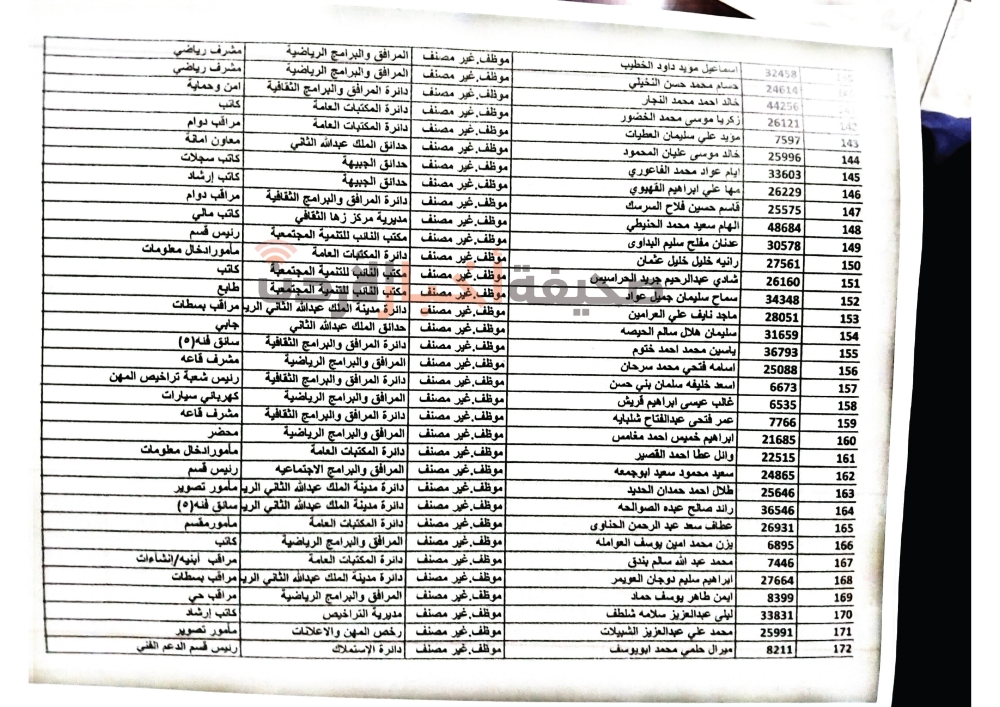 32458 اسماعيل مويد داود الخطيب موظف.غير مصنف المرافق والبرامج الرياضية مشرف رياضي
24614 حسام محمد حسن النخيلي موظف.غير مصنف المرافق والبرامج الرياضية مشرف رياضي
44256 خالد احمد محمد النجار موظف.غير مصنف دائرة المرافق والبرامج الثقافية امن وحماية
142 26121 زكريا موسى محمد الخضور موظف.غير مصنف دائرة المكتبات العامة كاتب
143 7597 مؤيد علي سليمان العطيات موظف.غير مصنف دائرة المكتبات العامة مراقب دوام
144 25996 خالد موسى عليان المحمود موظف.غير مصنف حدائق الملك عبدالله الثاني معاون امانة
145 33603 ايام عواد محمد الفاعوري موظف.غير مصنف حدائق الجبيهة كاتب سجلات
146 26229 مها علي ابراهيم القهيوي موظف.غير مصنف حدائق الجبيهة كاتب إرشاد
147 25575 قاسم حسين فلاح السرسك موظف.غير مصنف دائرة المرافق والبرامج الثقافية مراقب دوام
148 48684 الهام سعيد محمد الحنيطي موظف.غير مصنف مديرية مركز زها الثقافي كاتب مالي
149 30578 عدنان مفلح سليم البداوى موظف.غير مصنف مكتب النائب للتنمية المجتمعية رئيس قسم
150 27561 رانيه خليل خليل عثمان موظف.غير مصنف دائرة المكتبات العامة مأمورادخال معلومات
151 26160 شادي عبدالرحيم جريد الحراسيس موظف.غير مصنف مكتب النائب للتنمية المجتمعية كاتب
152 34348 سماح سليمان جميل عواد موظف.غير مصنف مكتب النائب للتنمية المجتمعية طابع
153 28051 ماجد نايف علي العرامين موظف.غير مصنف دائرة مدينة الملك عبدالله الثاني الري مراقب بسطات
154 31659 سليمان هلال سالم الحيصه موظف.غير مصنف حدائق الملك عبدالله الثاني جابي
155 36793 ياسين محمد احمد ختوم موظف.غير مصنف دائرة المرافق والبرامج الثقافية سائق فئه(٥)
156 25088 اسامه فتحي محمد سرحان موظف.غير مصنف المرافق والبرامج الرياضية مشرف قاعه
157 6673 اسعد خليفه سلمان بني حسن موظف.غير مصنف دائرة المرافق والبرامج الثقافية رئيس شعبة تراخيص المهن
158 6535 غالب عيسى ابراهيم قريش موظف.غير مصنف المرافق والبرامج الرياضية كهربائي سيارات
159 7766 عمر فتحى عبدالفتاح شلبايه موظف.غير مصنف دائرة المرافق والبرامج الثقافية مشرف قاعه
160 21685 ابراهيم خميس احمد مغامس موظف.غير مصنف المرافق والبرامج الرياضية محضر
161 22515 وائل عطا احمد القصير موظف.غير مصنف دائرة المكتبات العامة مأمورادخال معلومات
162 24865 سعيد محمود سعيد ابوجمعه موظف.غير مصنف المرافق والبرامج الاجتماعيه رئيس قسم
163 25646 طلال احمد حمدان الحديد موظف.غير مصنف دائرة مدينة الملك عبدالله الثاني الري مأمور تصوير
164 36546 رائد صالح عبده الصوالحه موظف.غير مصنف دائرة مدينة الملك عبدالله الثاني الري سائق فئه(٥)
165 26931 عطاف سعد عبد الرحمن الحناوى موظف.غير مصنف دائرة المكتبات العامة مأمورمقسم
166 6895 يزن محمد امين يوسف العوامله موظف.غير مصنف المرافق والبرامج الرياضية كاتب
167 7446 محمد عبد الله سالم بندق موظف.غير مصنف دائرة المكتبات العامة مراقب أبنيه/انشاءات
168 27664 ابراهيم سليم دوجان العويمر موظف.غير مصنف دائرة مدينة الملك عبدالله الثاني الري مراقب بسطات
169 8399 ايمن طاهر يوسف حماد موظف.غير مصنف المرافق والبرامج الرياضية مراقب حي
170 33831 ليلى عبدالعزيز سلامه شلطف موظف.غير مصنف مديرية التراخيص كاتب إرشاد
171 25991 محمد علي عبدالعزيز الشبيلات موظف.غير مصنف رخص المهن والاعلانات مأمور تصوير
172 8211 ميرال حلمي محمد ابويوسف موظف.غير مصنف دائرة الإستملاك رئيس قسم الدعم الفني
صحيفة أخبار الاردن